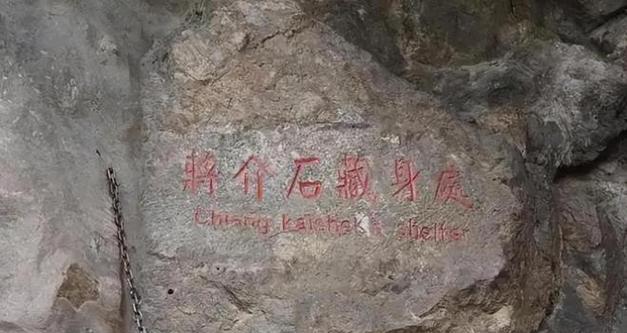 將介石藏身處
Chiang kaishek's shelter